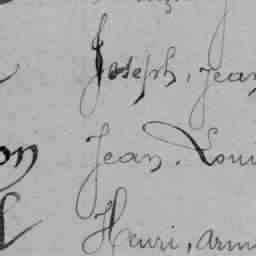 Joseph, Jean
on Jean. Loui
Henri, arm